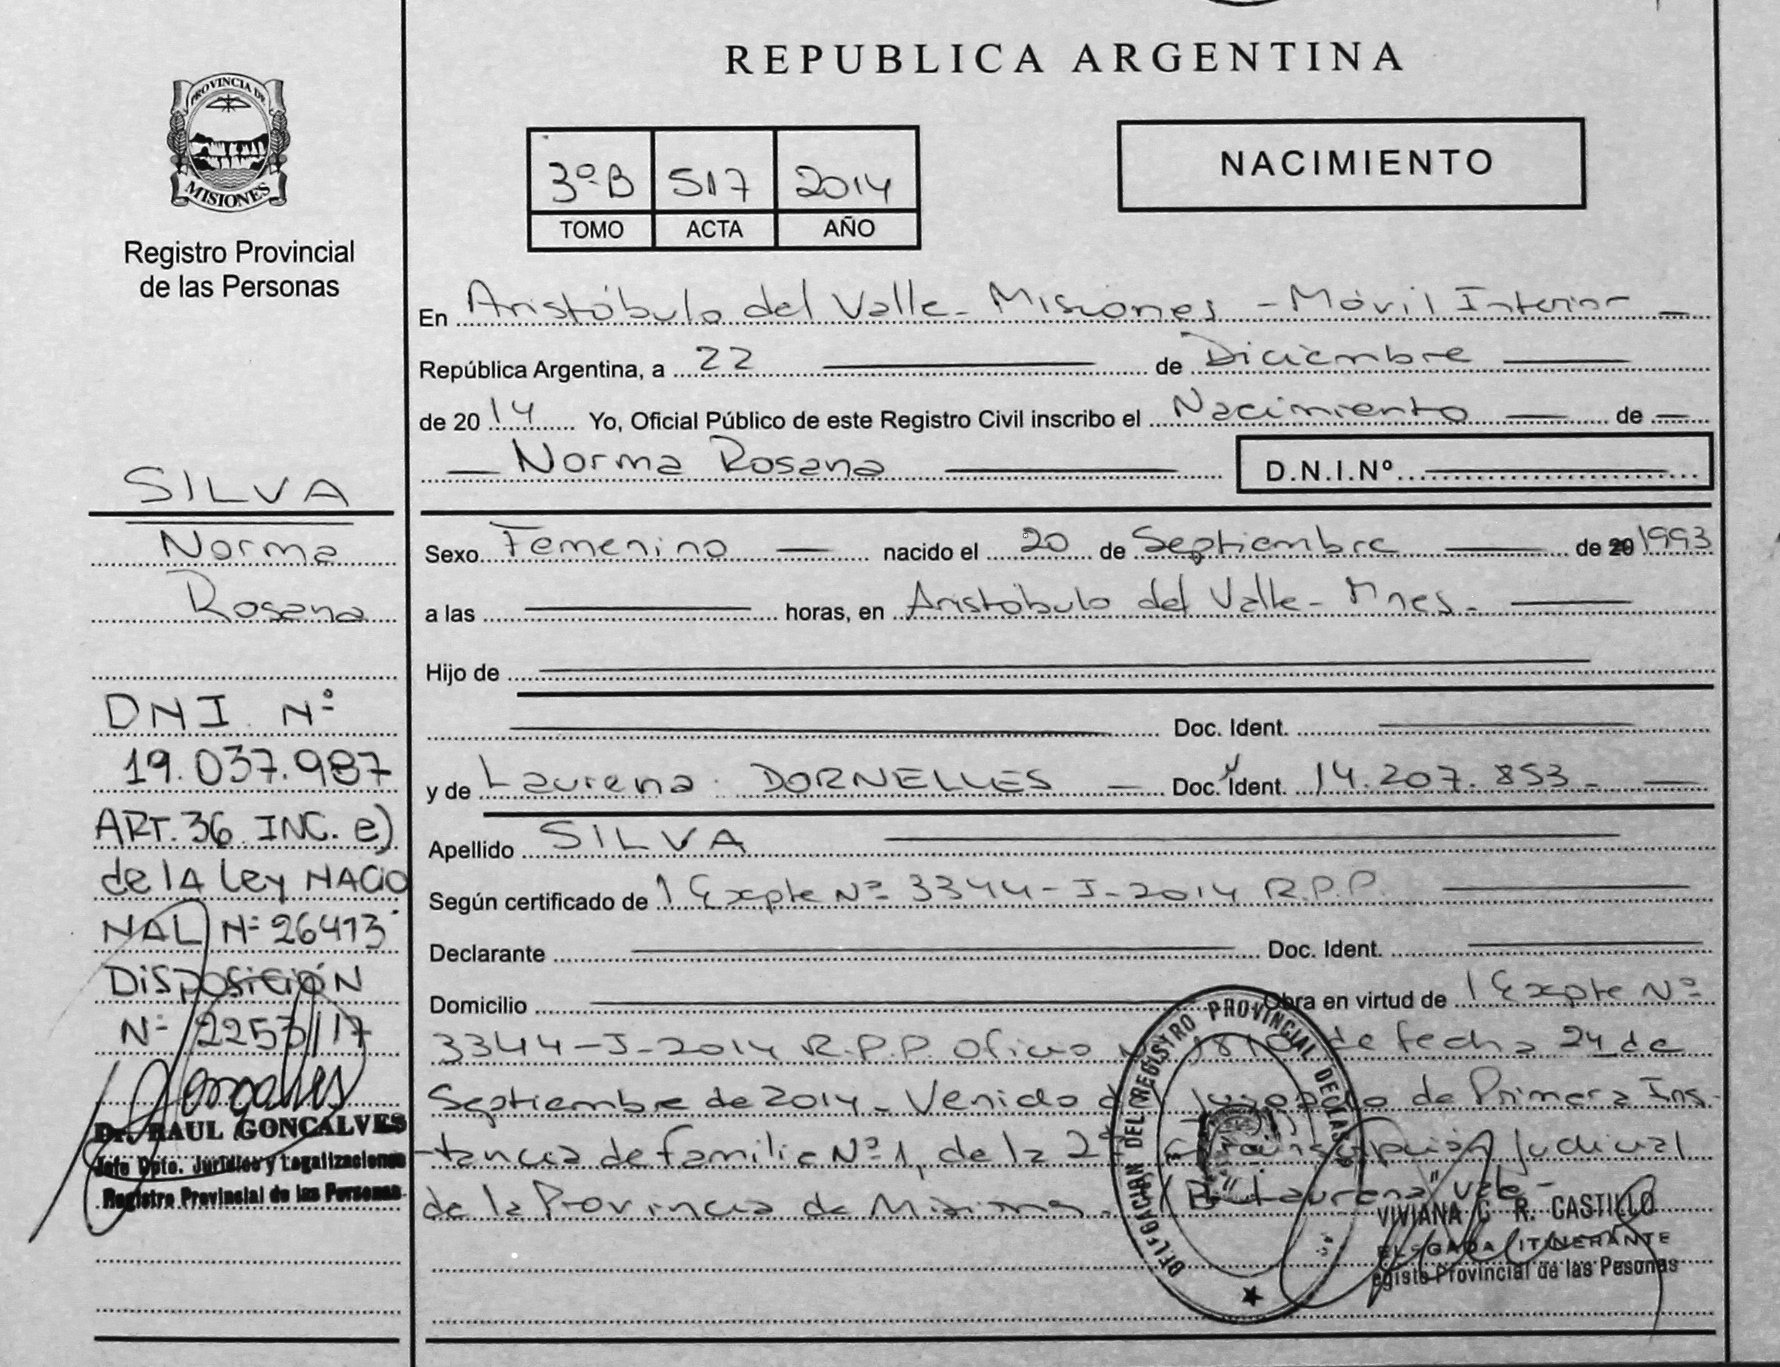 PROVINCIA DE
MISIONES
Registro Provincial
de las Personas
SILVA
Norma
Rosana
DNI Nº
19.037.987
ART. 36 INC. e)
de lA Ley NACIO
NAL Nº 26413
DISPOSICIÓN
Nº 2253/17
Dr. RAUL GONCALVES
Jefe Dpto. Jurídico y Legalizaciones
Registro Provincial de las Personas
REPUBLICA ARGENTINA
3ºB 517 2014
TOMO ACTA AÑO
NACIMIENTO
En Aristóbulo del Valle - Misiones - Móvil Interior
República Argentina, a 22 de Diciembre
de 2014 Yo, Oficial Público de este Registro Civil inscribo el Nacimiento de
Norma Rosana D.N.I.Nº
Sexo Femenino nacido el 20 de Septiembre de 20 1993
a las horas, en Aristóbulo del Valle - Mnes.
Hijo de
Doc. Ident.
y de Laurena DORNELLES Doc. Ident. 14.207.853
Apellido SILVA
Según certificado de Expte Nº 3344-J-2014 R.P.P.
Declarante Doc. Ident.
Domicilio Obra en virtud de Expte Nº
3344-J-2014 R.P.P. Oficio de fecha 24 de
Septiembre de 2014. Venido Juzgado de Primera Ins-
tancia de familia Nº 1, de la 2ª Circunscripción Judicial
de la Provincia de Misiones. "Laurena" Vale -
DELEGACIÓN DEL REGISTRO PROVINCIAL DE LAS
VIVIANA C. R. CASTILLO
DELEGADA ITINERANTE
egisto Provincial de las Pesonas